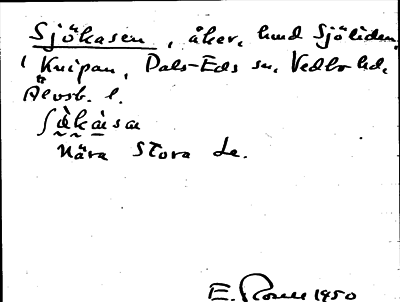 Sjökasen, åker, hmd Sjöliden,
i Knipan, Dals-Eds sn, Vedbo hd,
Älvsb. l.
ʃø̀kàsa
Nära Stora Le.
E. 1950